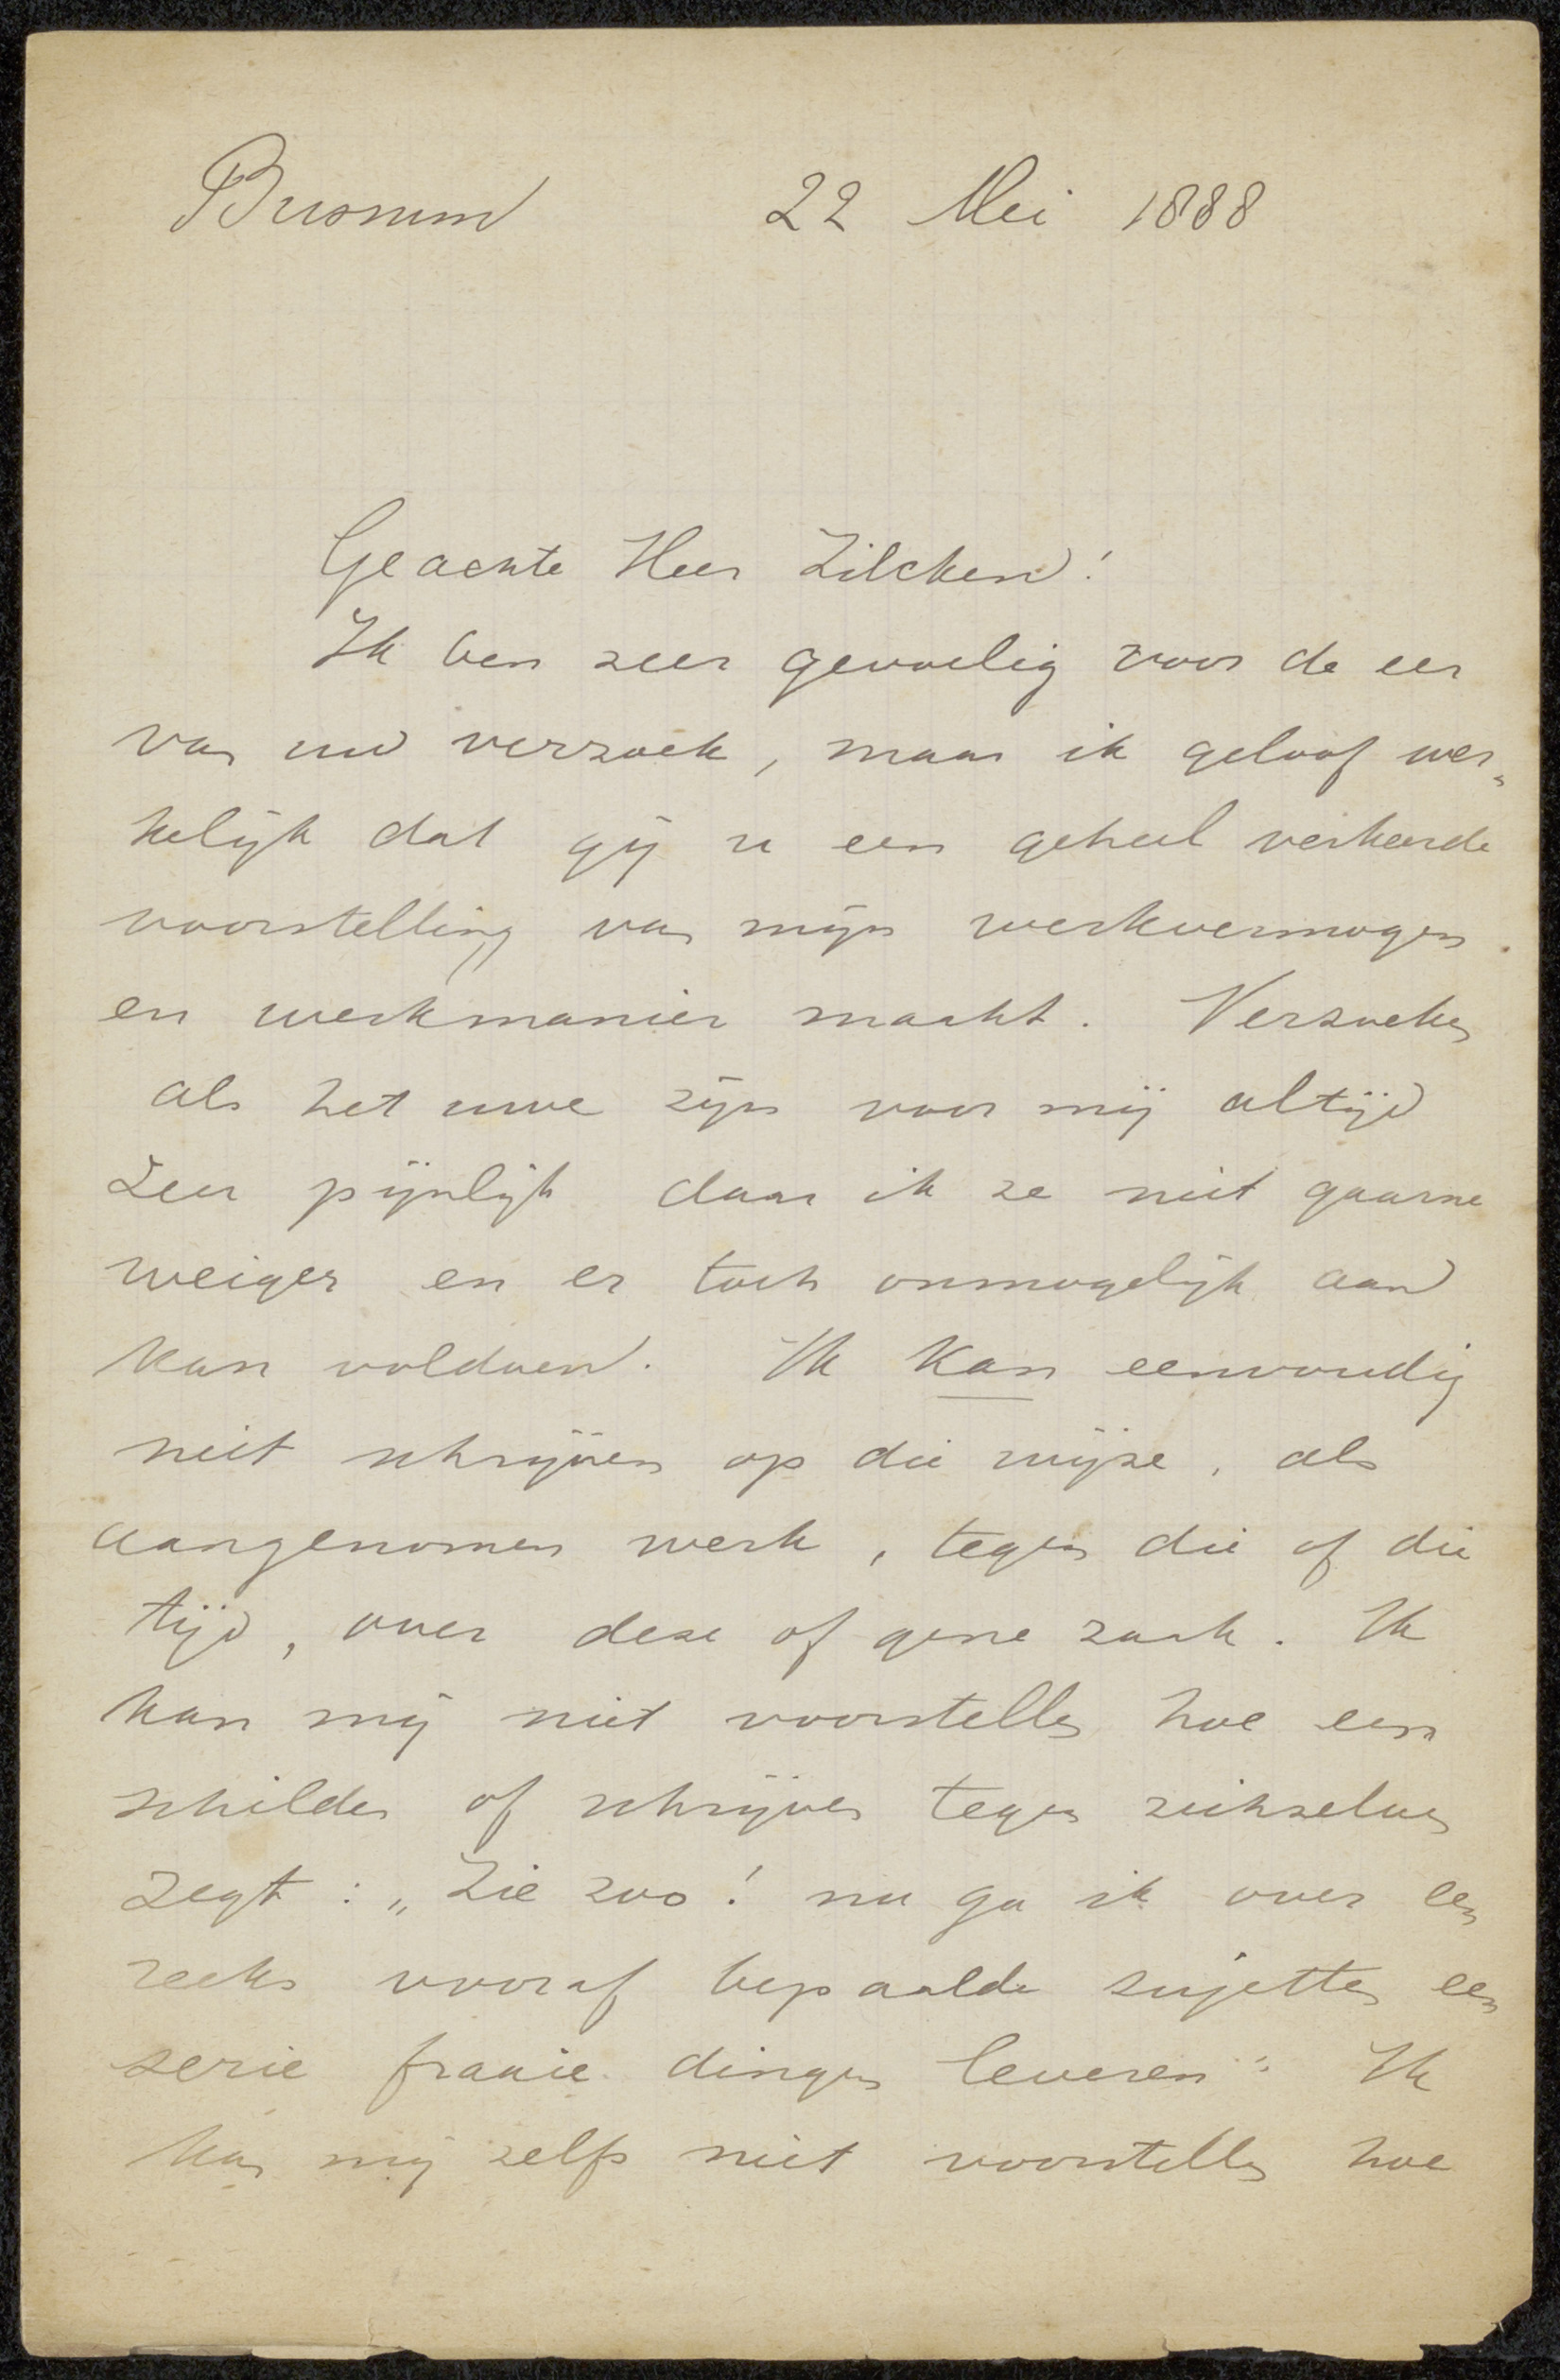 Bussum 22 Mei 1888
Geachte Heer Zilcken!
Ik ben zeer gevoelig voor de eer
van uw verzoek, maar ik geloof wer„
kelijk dat gij u een geheel verkeerde
voorstelling van mijn werkvermogen
en werkmanier maakt. Verzoeken
als het uwe zijn voor mij altijd
zeer pijnlijk daar ik ze niet gaarne
weiger en er toch onmogelijk aan
kan voldoen. Ik kan eenvoudig
niet schrijven op die wijze, als
aangenomen werk, tegen die of die
tijd, over deze of gene zaak. Ik
kan mij niet voorstellen hoe een
schilder of schrijver tegen zichzelven
zegt: „Zie zoo! nu ga ik over een
reeks vooraf bepaalde sujetten een
serie fraaie dingen leveren". Ik
kan mij zelfs niet voorstellen hoe